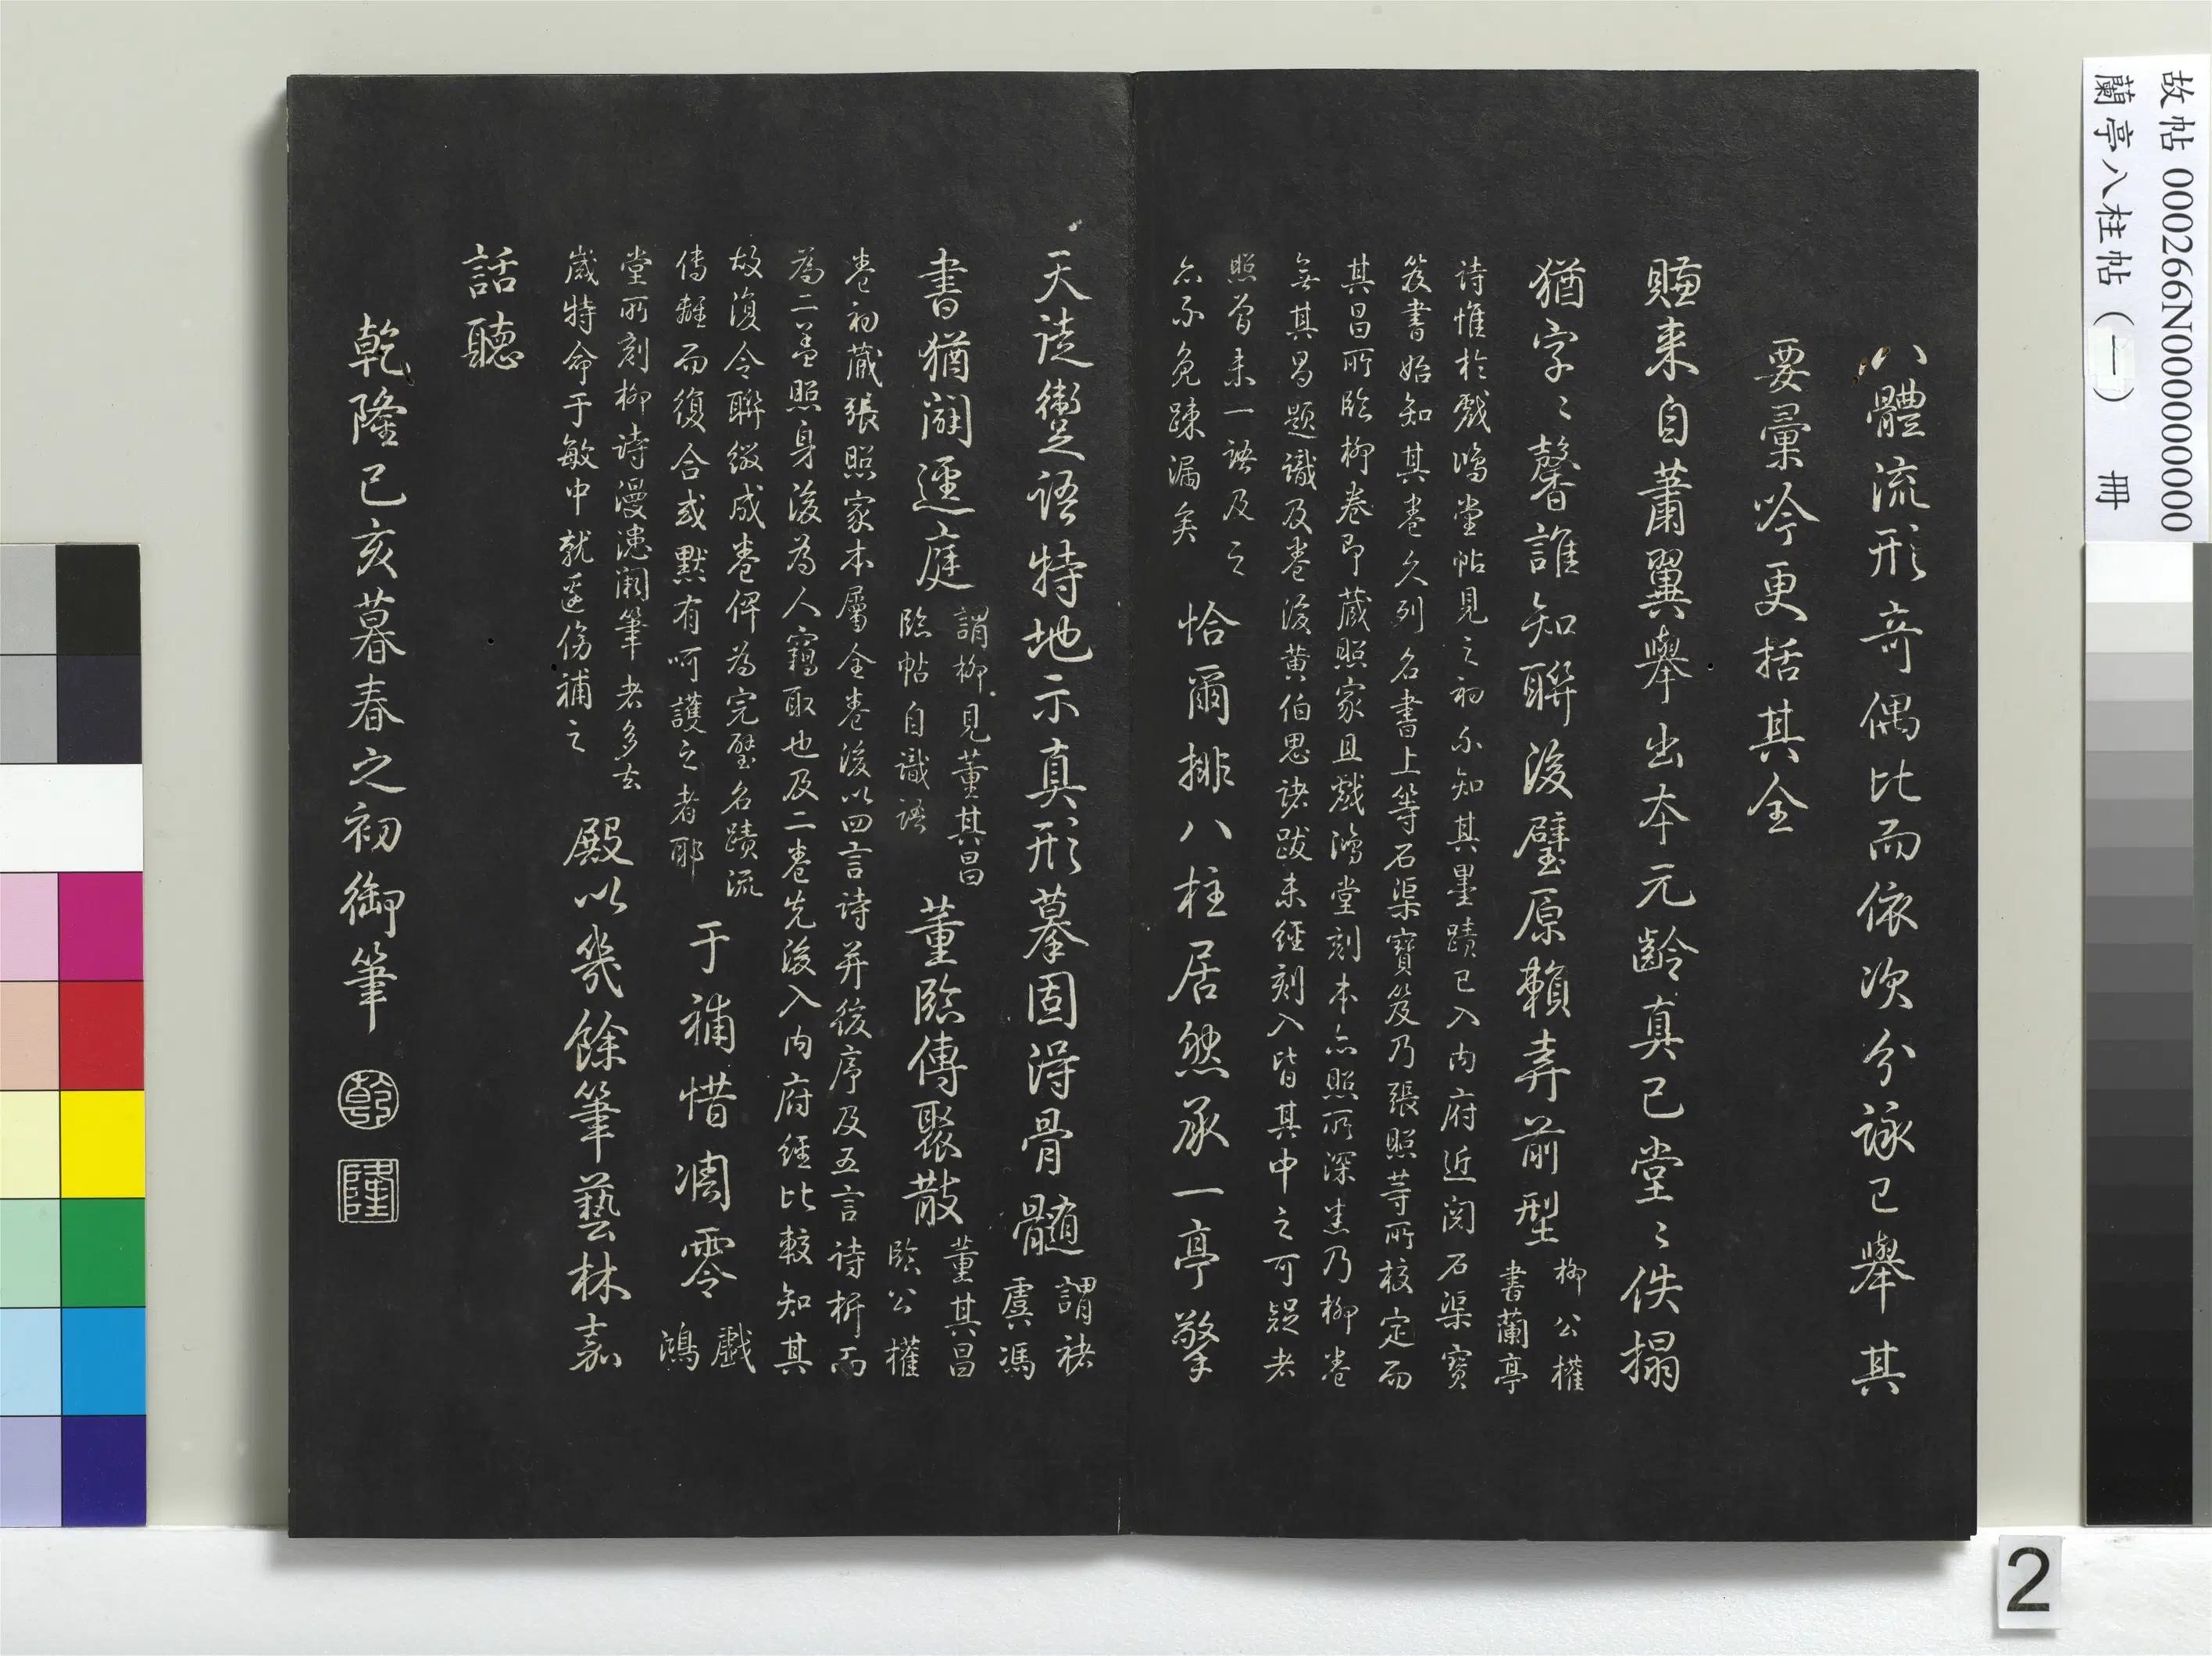 八體流形奇偶比而依次分詠已舉其
要彙吟更括其全
賺来自蕭翼舉出本元齡真已堂〻佚搨
猶字〻馨誰知聯後璧原賴弆前型 柳公權
書蘭亭
詩惟於戲鴻堂帖見之初不知其墨蹟已入内府近閱石渠寶
笈書始知其卷久列名書上等石渠寶笈乃張照等所校定而
其昌所臨柳卷即蔵照家且戲鴻堂刻本亦照所深悉乃柳卷
無其昌題識及卷後黄伯思諸跋未經刻入皆其中之可疑者
照曾未一語及之
亦不免踈漏矣 恰爾排八柱居然承一亭擎
天徒衞足語特地示真形摹固得骨髓 謂褚
虞馮
書猶闢逕庭 謂柳見董其昌
臨帖自識語 董臨傳聚散 董其昌
臨公權
卷初蔵張照家本屬全卷後以四言詩并後序及五言詩析而
為二盖照身後為人竊取也及二卷先後入内府經比較知其
故復令聯綴成卷俾為完璧名蹟流
傳離而復合或默有呵護之者耶 于補惜凋零 戲
鴻
堂所刻柳詩漫漶闕筆者多去
嵗特命于敏中就邊傍補之 殿以幾餘筆藝林嘉
話聽
乾隆己亥暮春之初御筆
乾
隆
故帖 000266N000000000
蘭亭八柱帖（一） 冊
2